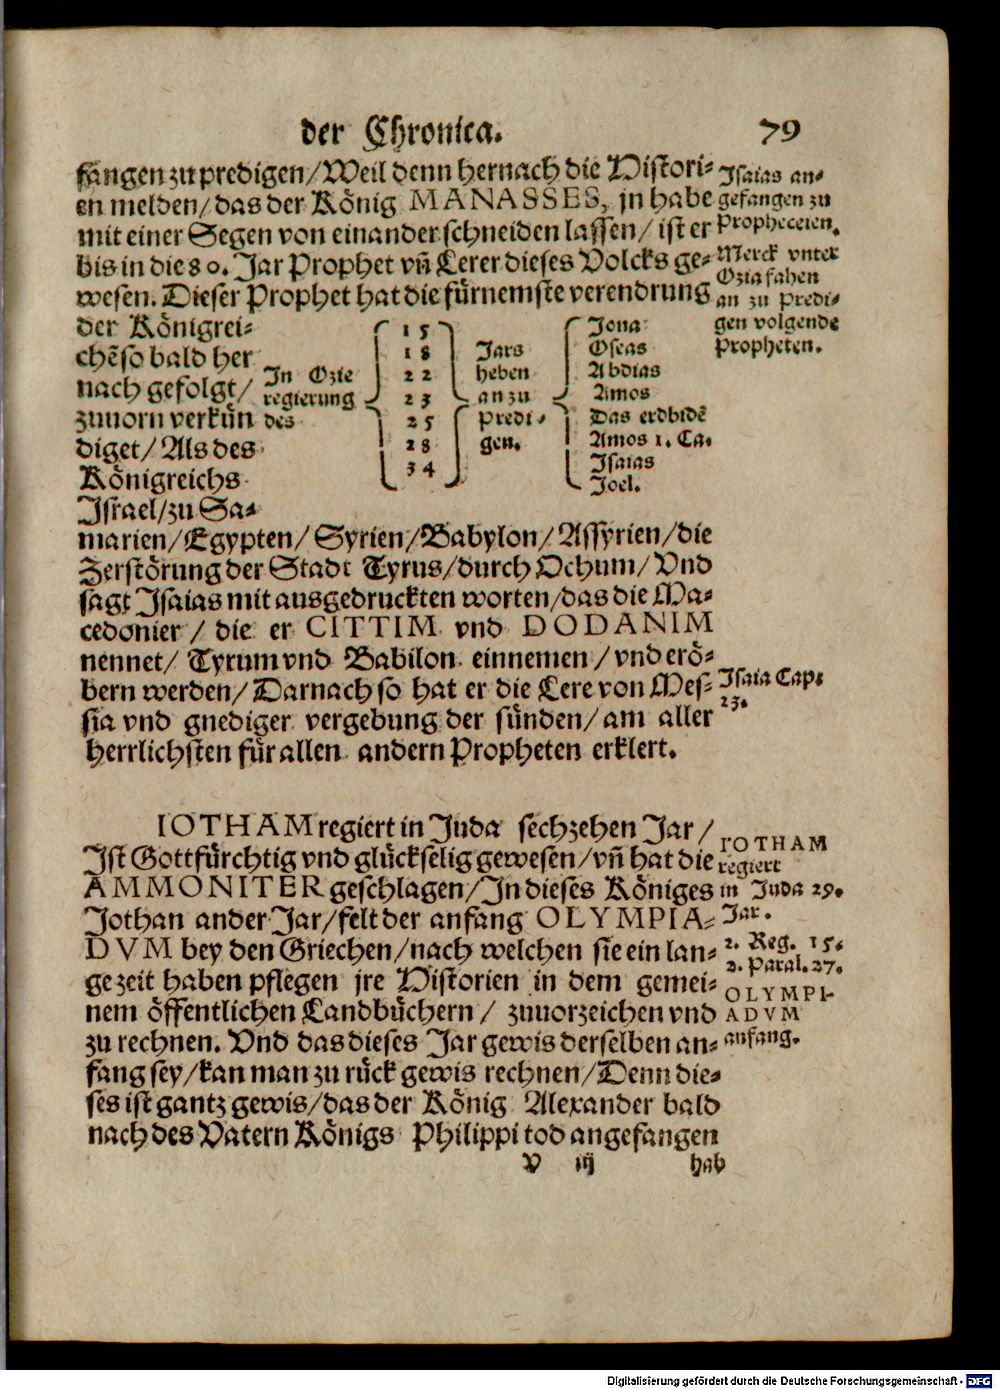 der Chronica. 79
fangen zu predigen/Weil denn hernach die Histori-
en melden/das der König MANASSES, jn habe
mit einer Segen von einander schneiden lassen/ ist er
bis in die 80. Jar Prophet vñ Lerer dieses Volcks ge-
wesen. Dieser Prophet hat die fürnemste verendrung
der Königrei-
chē so bald her
nach gefolgt/
zuuorn verkün
diget/ Als des
Königreichs
Israel/zu Sa-
In Ozie
regierung
des
15
18
22
23
25
28
34
Jars
heben
an zu
Predi-
gen.
Jona
Oseas
Abdias
Amos
Das erdbidē
Amos 1. Ca.
Isaias
Joel.
marien/Egypten/ Syrien/Babylon/Assyrien/die
Zerstörung der Stadt Tyrus/durch Ochum/ Vnd
sagt Isaias mit ausgedruckten worten/das die Ma-
cedonier / die er CITTIM vnd DODANIM
nennet/ Tyrum vnd Babilon einnemen /vnd erö-
bern werden/ Darnach so hat er die Lere von Mes-
sia vnd gnediger vergebung der sünden/ am aller
herrlichsten für allen andern Propheten erklert.
Isaias an-
gefangen zu
Propheceien.
Merck vnter
Ozia fahen
an zu Predi-
gen volgende
Propheten.
Isaia Cap.
23.
IOTHAM regiert in Juda sechzehen Jar /
Ist Gottfürchtig vnd glückselig gewesen/vñ hat die
AMMONITER geschlagen/In dieses Königes
Jothan ander Jar/felt der anfang OLYMPIA-
DVM bey den Griechen/nach welchen sie ein lan-
ge zeit haben pflegen jre Historien in dem gemei-
nem öffentlichen Landbüchern / zuuorzeichen vnd
zu rechnen. Vnd das dieses Jar gewis derselben an-
fang sey/kan man zu rück gewis rechnen/Denn die-
ses ist gantz gewis/das der König Alexander bald
nach des Vatern Königs Philippi tod angefangen
IOTHAM
regiert
in Juda 29.
Jar.
2. Reg. 15.
2. Paral. 27.
OLYMPI-
ADVM
anfang.
V iij hab
Digitalisierung gefördert durch die Deutsche Forschungsgemeinschaft - DFG